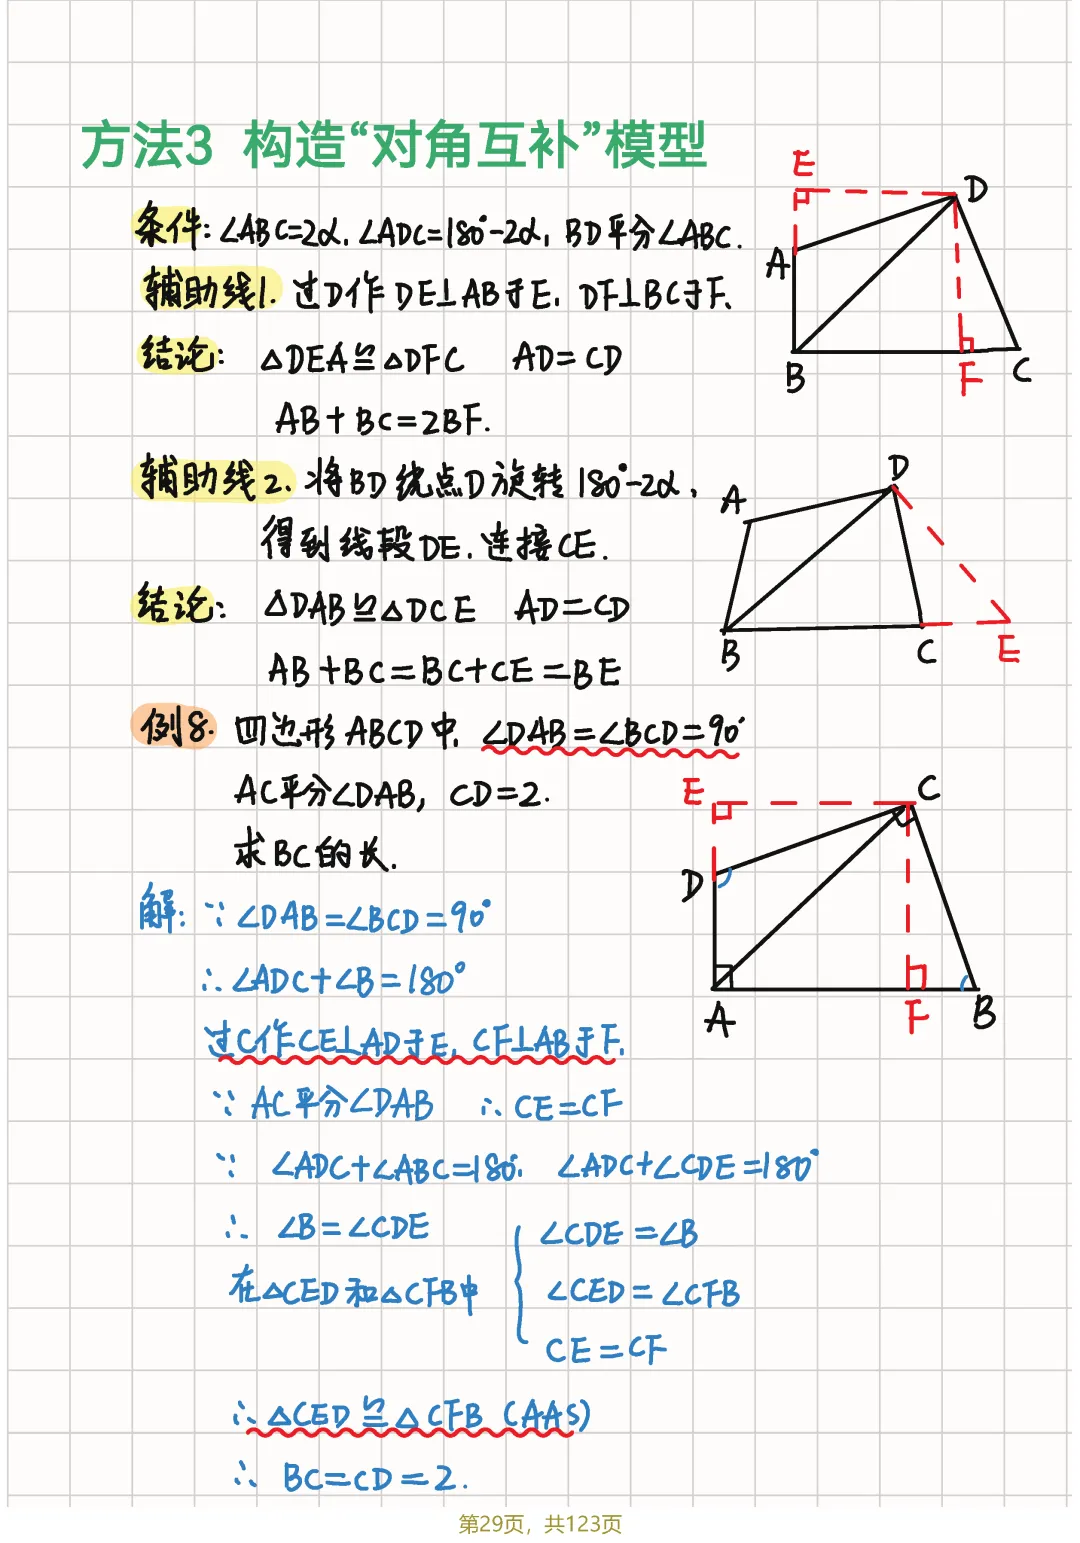 方法3 构造“对角互补”模型
条件: ∠ABC=2α, ∠ADC=180°-2α, BD平分∠ABC.
辅助线1. 过D作DE⊥AB于E, DF⊥BC于F.
结论: △DEA≌△DFC AD=CD
AB+BC=2BF.
E
D
A
B
F
C
辅助线2. 将BD绕点D旋转180°-2α,
得到线段DE, 连接CE.
结论: △DAB≌△DCE AD=CD
AB+BC=BC+CE=BE
D
A
B
C
E
例8. 四边形ABCD中, ∠DAB=∠BCD=90°
AC平分∠DAB, CD=2.
求BC的长.
E
C
D
A
F
B
解: ∵ ∠DAB=∠BCD=90°
∴ ∠ADC+∠B=180°
过C作CE⊥AD于E, CF⊥AB于F.
∵ AC平分∠DAB ∴ CE=CF
∵ ∠ADC+∠ABC=180°, ∠ADC+∠CDE=180°
∴ ∠B=∠CDE
在△CED和△CFB中
∠CDE=∠B
∠CED=∠CFB
CE=CF
∴ △CED≌△CFB (AAS)
∴ BC=CD=2.
第29页，共123页